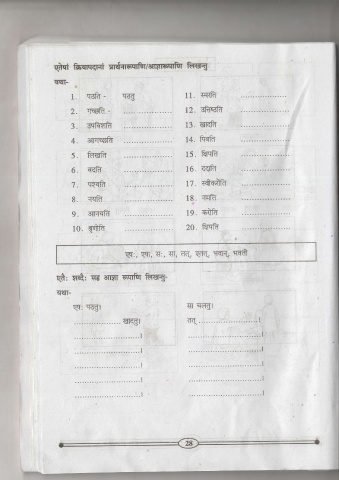 एतेषां क्रियापदानां प्रार्थनारूपाणि/आज्ञारूपाणि लिखन्तु
यथा-
1. पठति - पठतु
2. गच्छति - ....................
3. उपविशति ....................
4. आगच्छति ....................
5. लिखति ....................
6. वदति ....................
7. पश्यति ....................
8. नयति ....................
9. आनयति ....................
10. शृणोति ....................
11. स्मरति ....................
12. उत्तिष्ठति ....................
13. खादति ....................
14. पिबति ....................
15. क्षिपति ....................
16. ददाति ....................
17. स्वीकरोति ....................
18. नमति ....................
19. करोति ....................
20. ....................
एषः, एषा, सः, सा, तत्, एतत्, भवान्, भवती
एतैः शब्दैः सह आज्ञा रूपाणि लिखन्तु-
यथा-
एषः पठतु। सा चलतु।
.................... खादतु। तत् ....................।
28